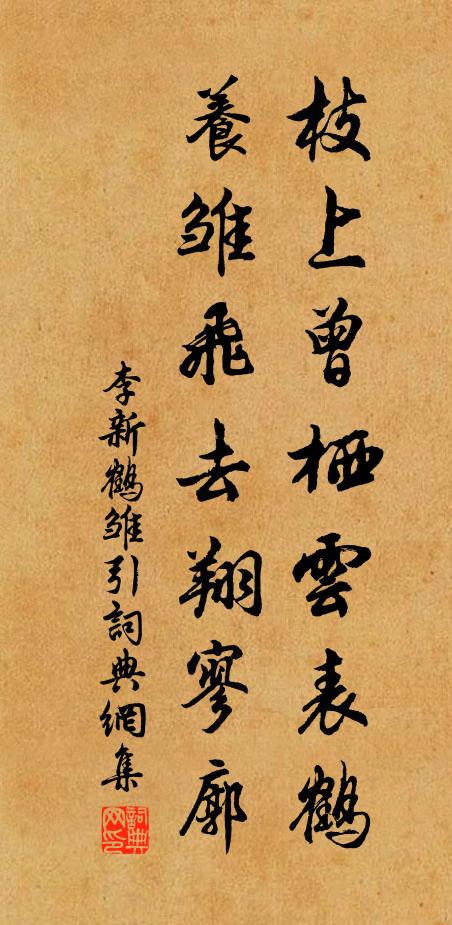 枝上曾栖雲表鶴
養雏飛去翔寥廓
李新鶴雏引詞典網集
詞典网印